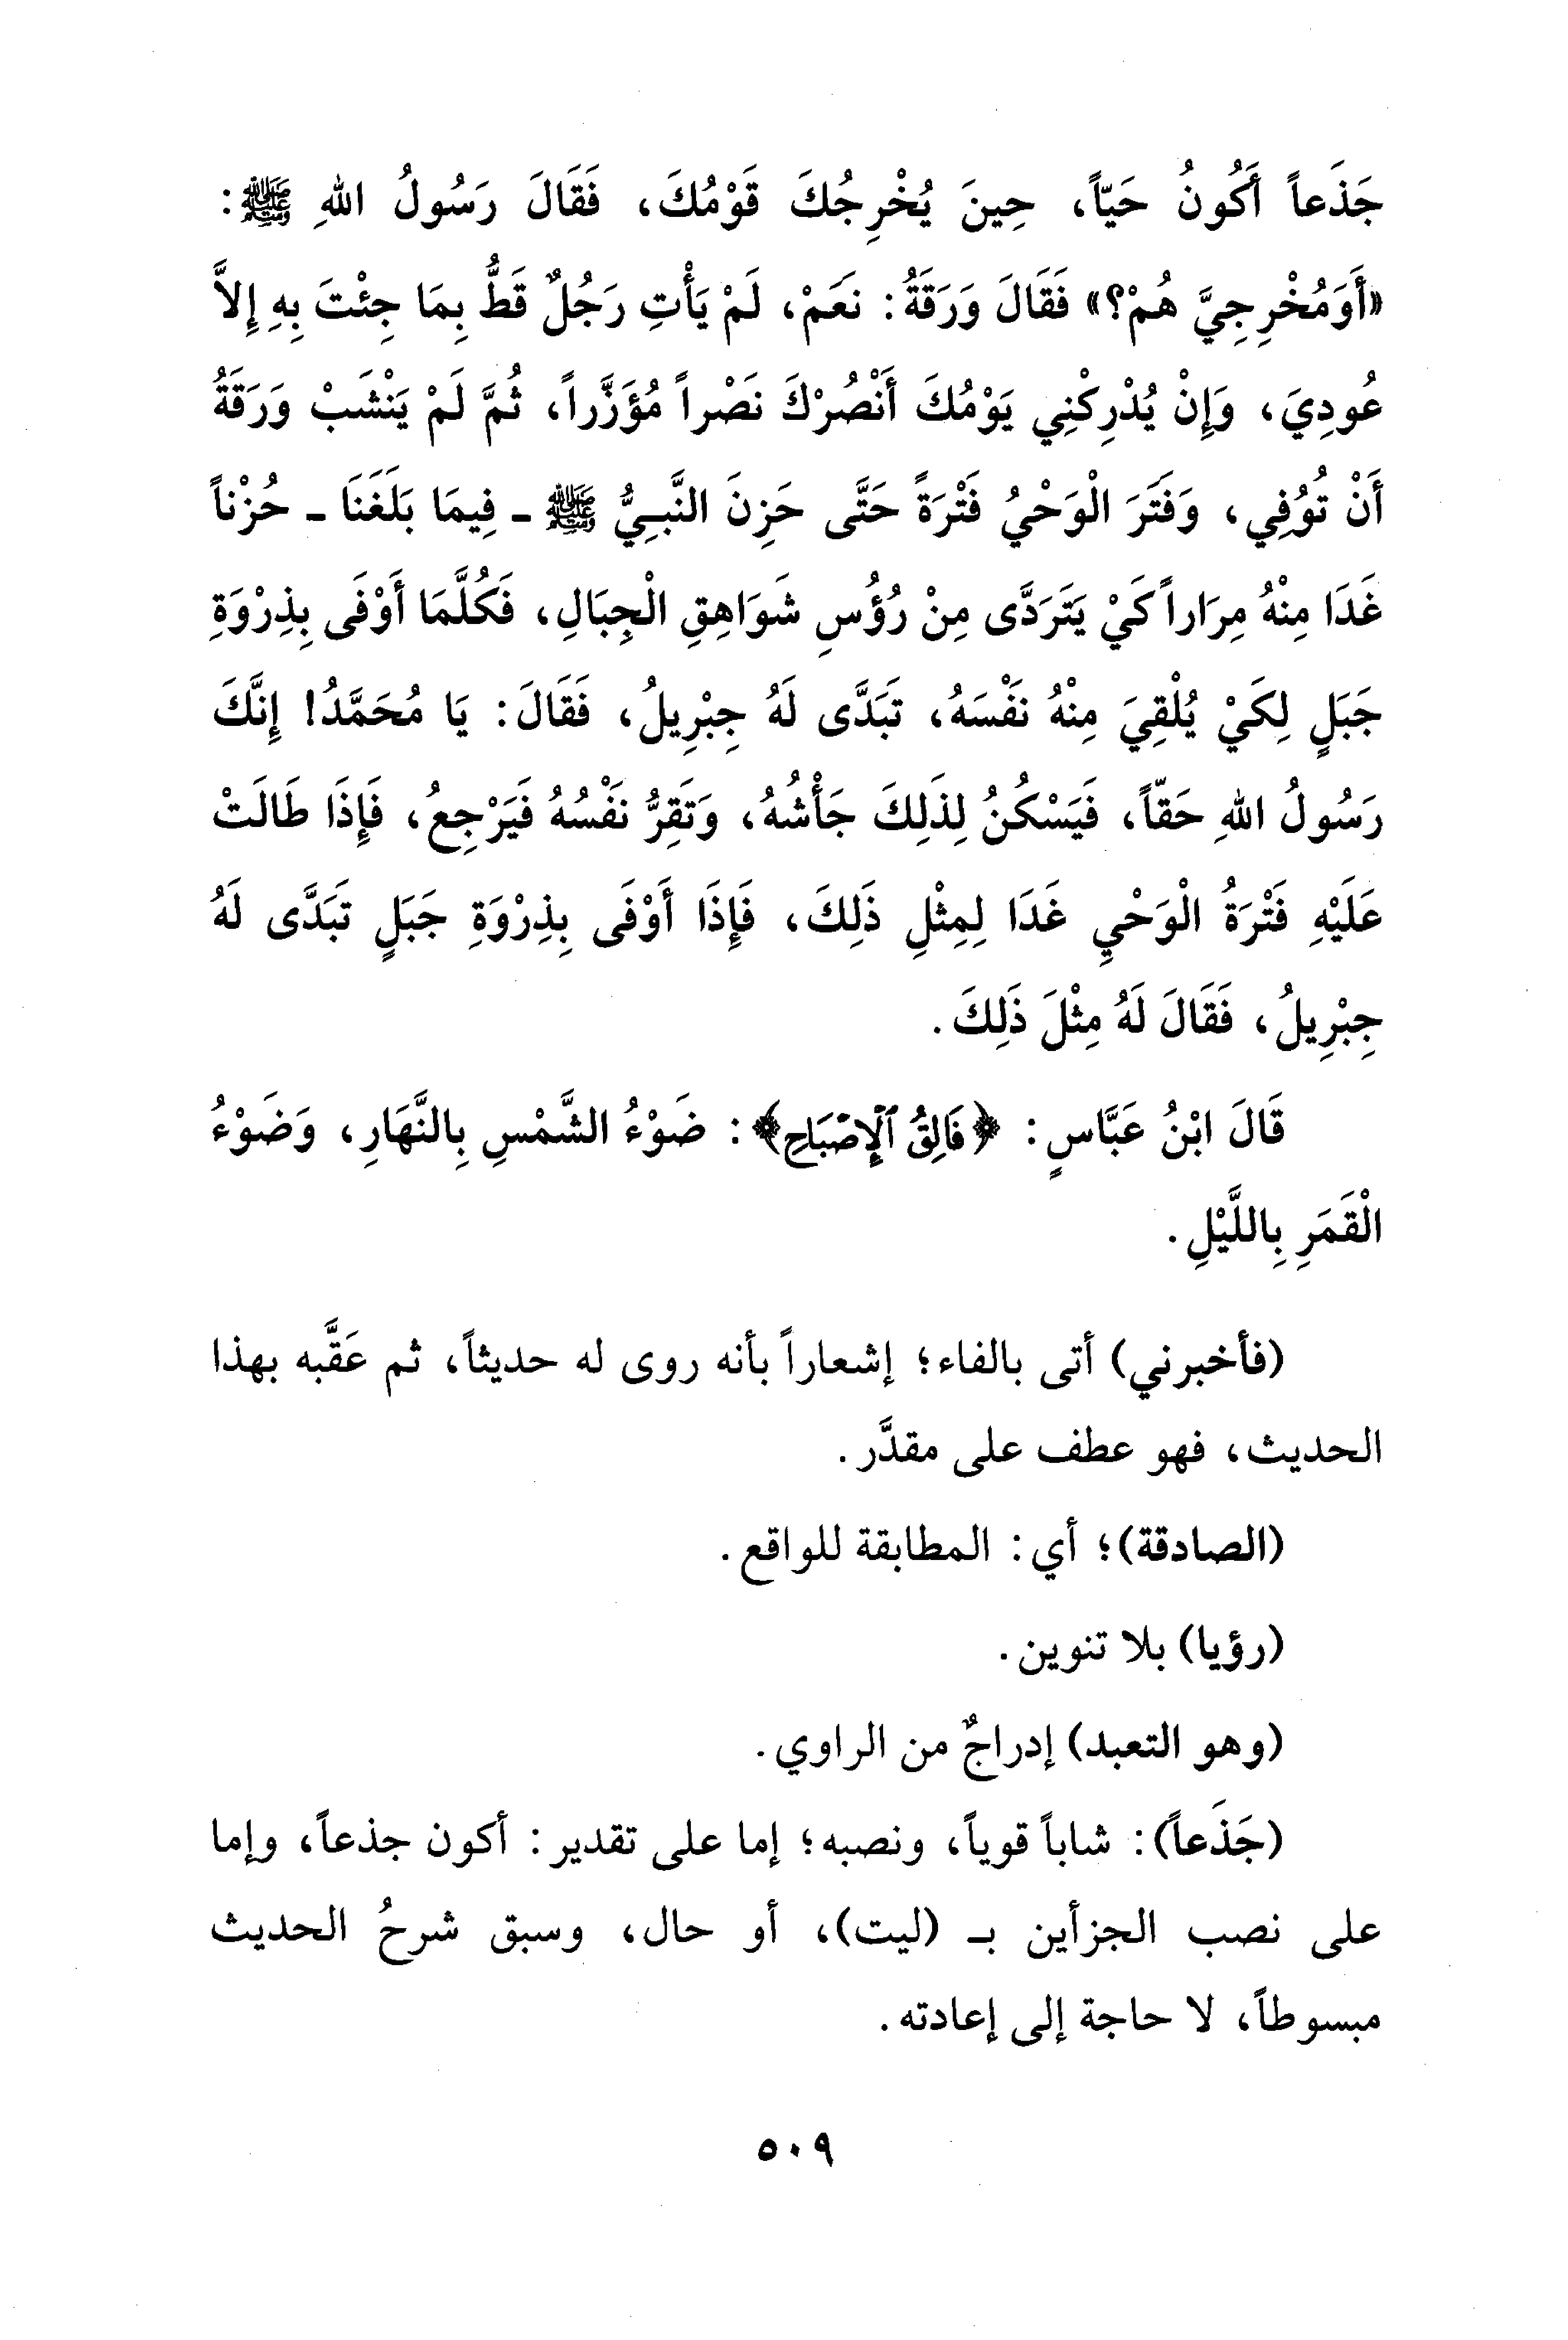 جَذَعاً أَكُونُ حَيّاً، حِينَ يُخْرِجُكَ قَوْمُكَ، فَقَالَ رَسُولُ اللهِ ﷺ:
«أَوَمُخْرِجِيَّ هُمْ؟» فَقَالَ وَرَقَةُ: نَعَمْ، لَمْ يَأْتِ رَجُلٌ قَطُّ بِمَا جِئْتَ بِهِ إِلاَّ
عُودِيَ، وَإِنْ يُدْرِكْنِي يَوْمُكَ أَنْصُرْكَ نَصْراً مُؤَزَّراً، ثُمَّ لَمْ يَنْشَبْ وَرَقَةُ
أَنْ تُوُفِي، وَفَتَرَ الْوَحْيُ فَتْرَةً حَتَّى حَزِنَ النَّبِيُّ ﷺ ـ فِيمَا بَلَغَنَا ـ حُزْناً
غَدَا مِنْهُ مِرَاراً كَيْ يَتَرَدَّى مِنْ رُؤُسِ شَوَاهِقِ الْجِبَالِ، فَكُلَّمَا أَوْفَى بِذِرْوَةِ
جَبَلٍ لِكَيْ يُلْقِيَ مِنْهُ نَفْسَهُ، تَبَدَّى لَهُ جِبْرِيلُ، فَقَالَ: يَا مُحَمَّدُ! إِنَّكَ
رَسُولُ اللهِ حَقّاً، فَيَسْكُنُ لِذَلِكَ جَأْشُهُ، وَتَقِرُّ نَفْسُهُ فَيَرْجِعُ، فَإِذَا طَالَتْ
عَلَيْهِ فَتْرَةُ الْوَحْيِ غَدَا لِمِثْلِ ذَلِكَ، فَإِذَا أَوْفَى بِذِرْوَةِ جَبَلٍ تَبَدَّى لَهُ
جِبْرِيلُ، فَقَالَ لَهُ مِثْلَ ذَلِكَ.
قَالَ ابْنُ عَبَّاسٍ: ﴿فَالِقُ ٱلْإِصْبَاحِ﴾: ضَوْءُ الشَّمْسِ بِالنَّهَارِ، وَضَوْءُ
الْقَمَرِ بِاللَّيْلِ.
(فأخبرني) أتى بالفاء؛ إشعاراً بأنه روى له حديثاً، ثم عَقَّبه بهذا
الحديث، فهو عطف على مقدَّر.
(الصادقة)؛ أي: المطابقة للواقع.
(رؤيا) بلا تنوين.
(وهو التعبد) إدراجٌ من الراوي.
(جَذَعاً): شاباً قوياً، ونصبه؛ إما على تقدير: أكون جذعاً، وإما
على نصب الجزأين بـ (ليت)، أو حال، وسبق شرحُ الحديث
مبسوطاً، لا حاجة إلى إعادته.
٥٠٩